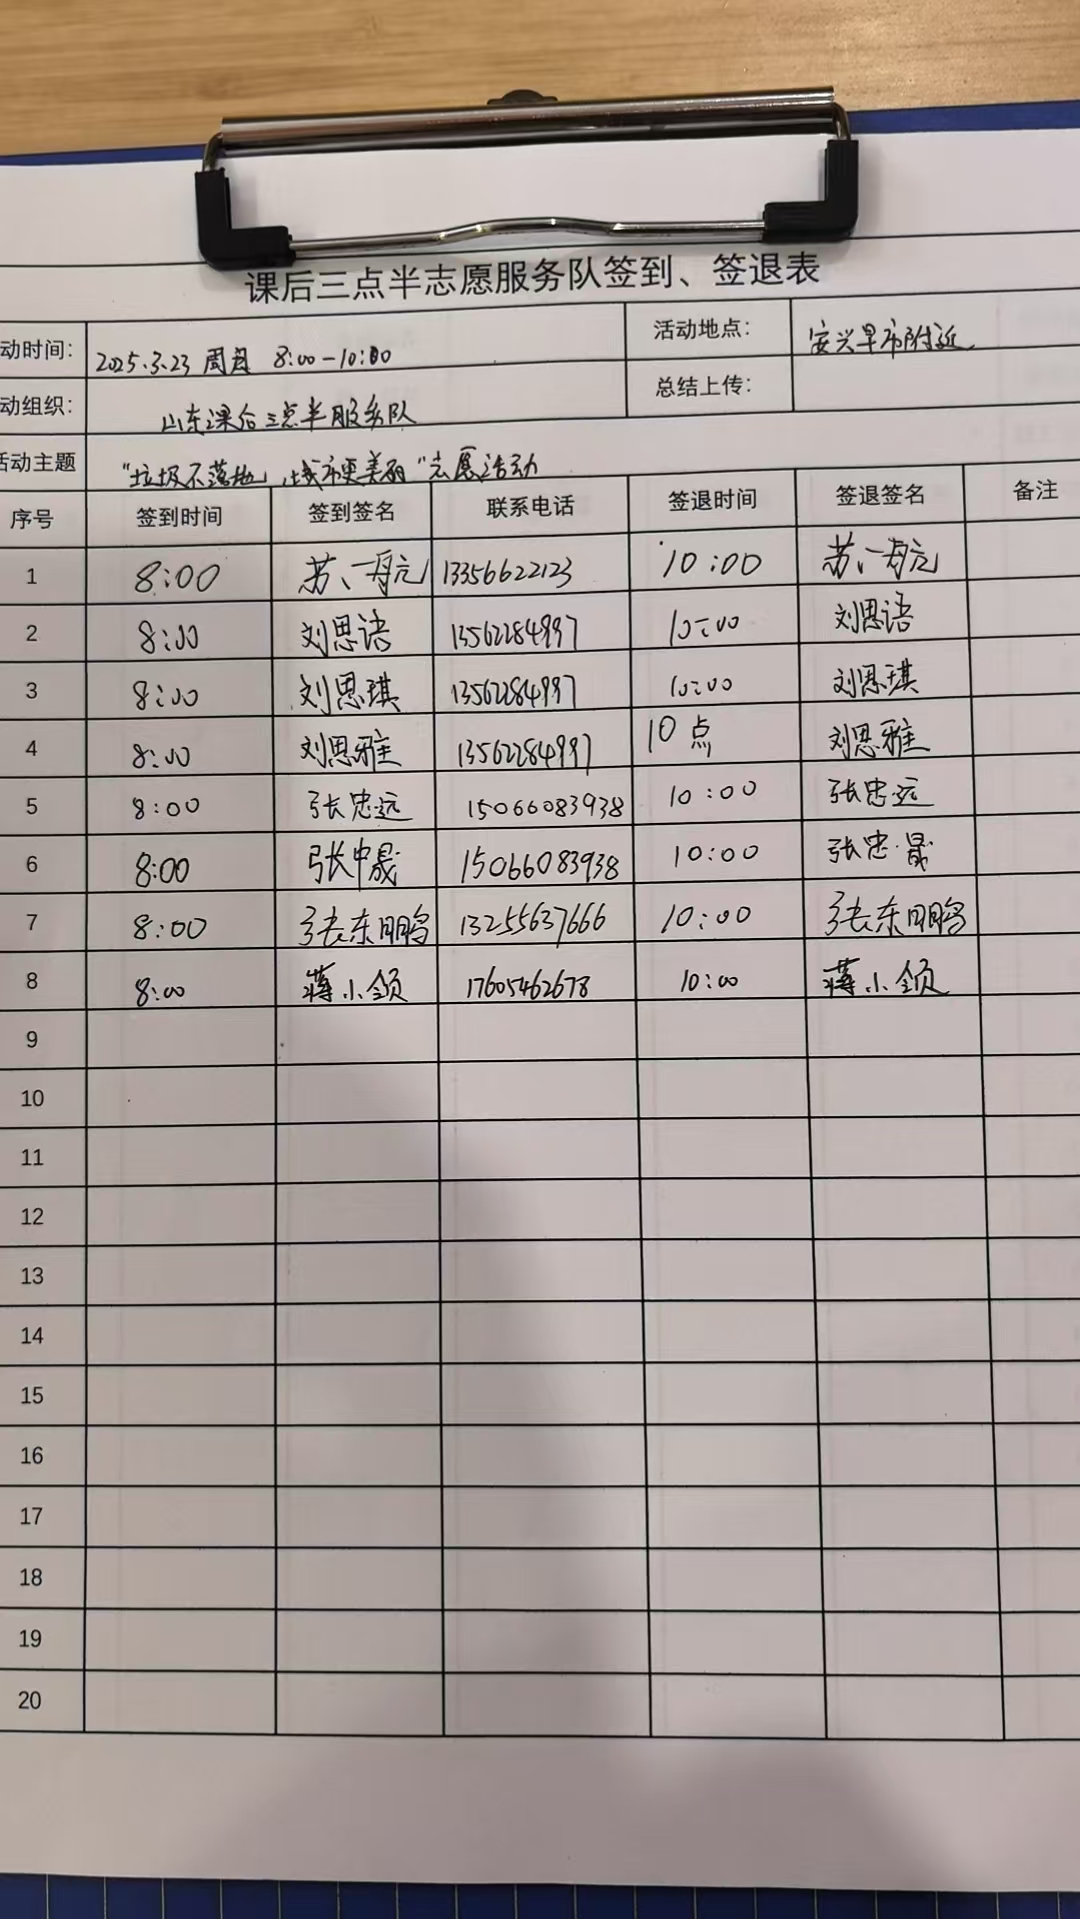 课后三点半志愿服务队签到、签退表
动时间: 2025.3.23 周日 8:00-10:00 活动地点: 安兴早市附近
动组织: 山东课后三点半服务队 总结上传:
活动主题 "垃圾不落地,城市更美丽"志愿活动
序号 签到时间 签到签名 联系电话 签退时间 签退签名 备注
1 8:00 苏一丹元 13356622123 10:00 苏一丹元
2 8:00 刘思语 13562284997 10:00 刘思语
3 8:00 刘思琪 13562284997 10:00 刘思琪
4 8:00 刘思雅 13562284997 10点 刘思雅
5 8:00 张忠远 15066083938 10:00 张忠远
6 8:00 张中晟 15066083938 10:00 张忠晟
7 8:00 张东鹏 13255637666 10:00 张东鹏
8 8:00 蒋小领 17605462678 10:00 蒋小领
9
10
11
12
13
14
15
16
17
18
19
20